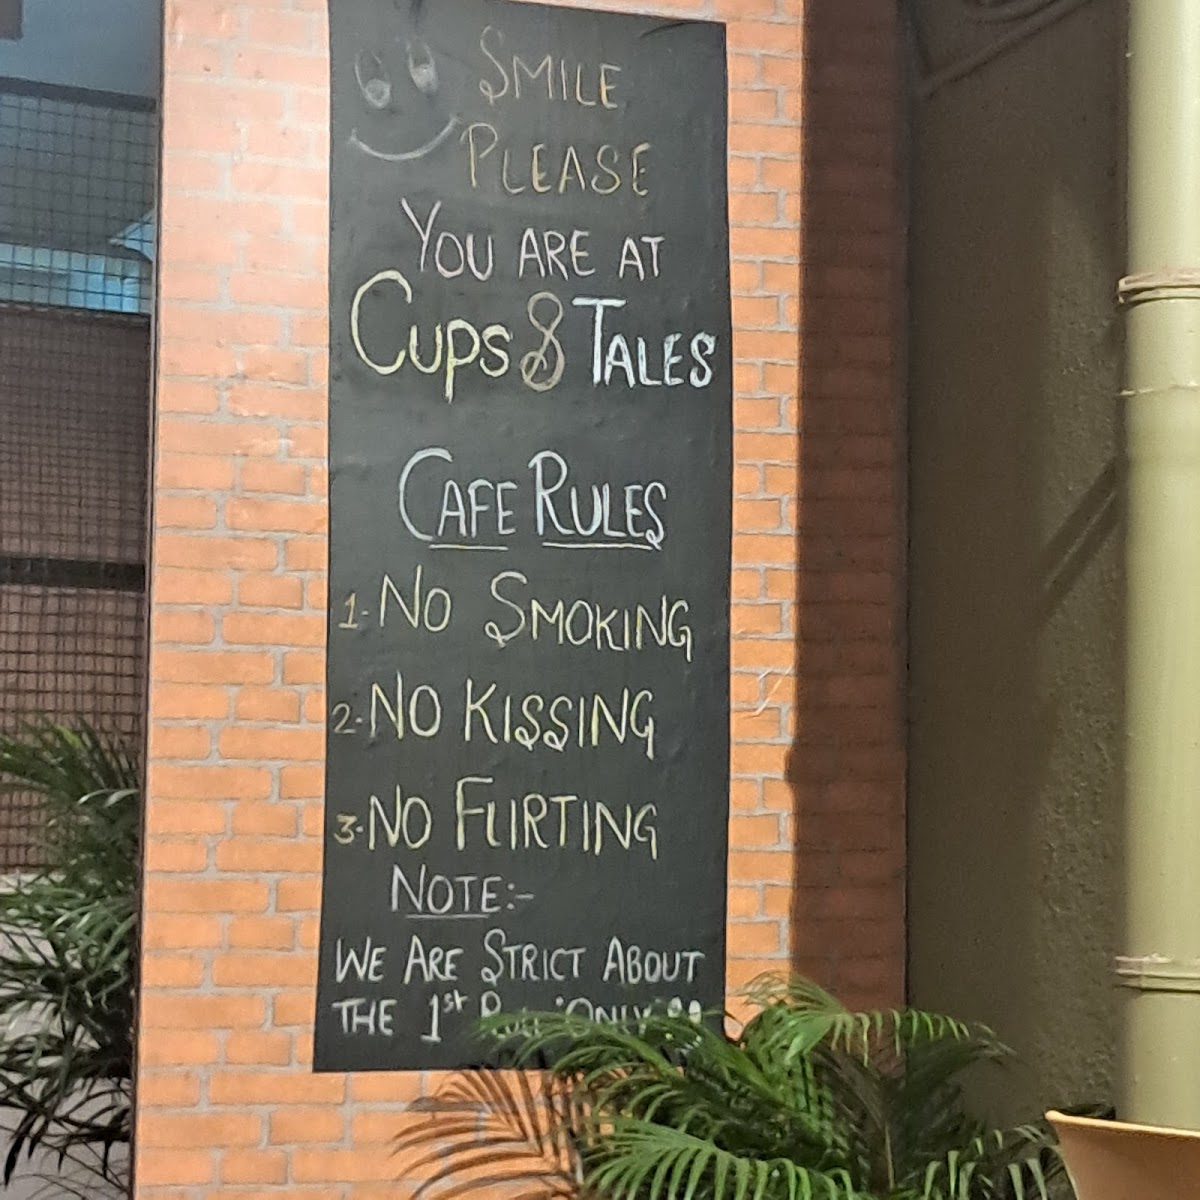 SMILE
PLEASE
YOU ARE AT
CUPS & TALES
CAFE RULES
1. NO SMOKING
2. NO KISSING
3. NO FLIRTING
NOTE:-
WE ARE STRICT ABOUT
THE 1st ONLY